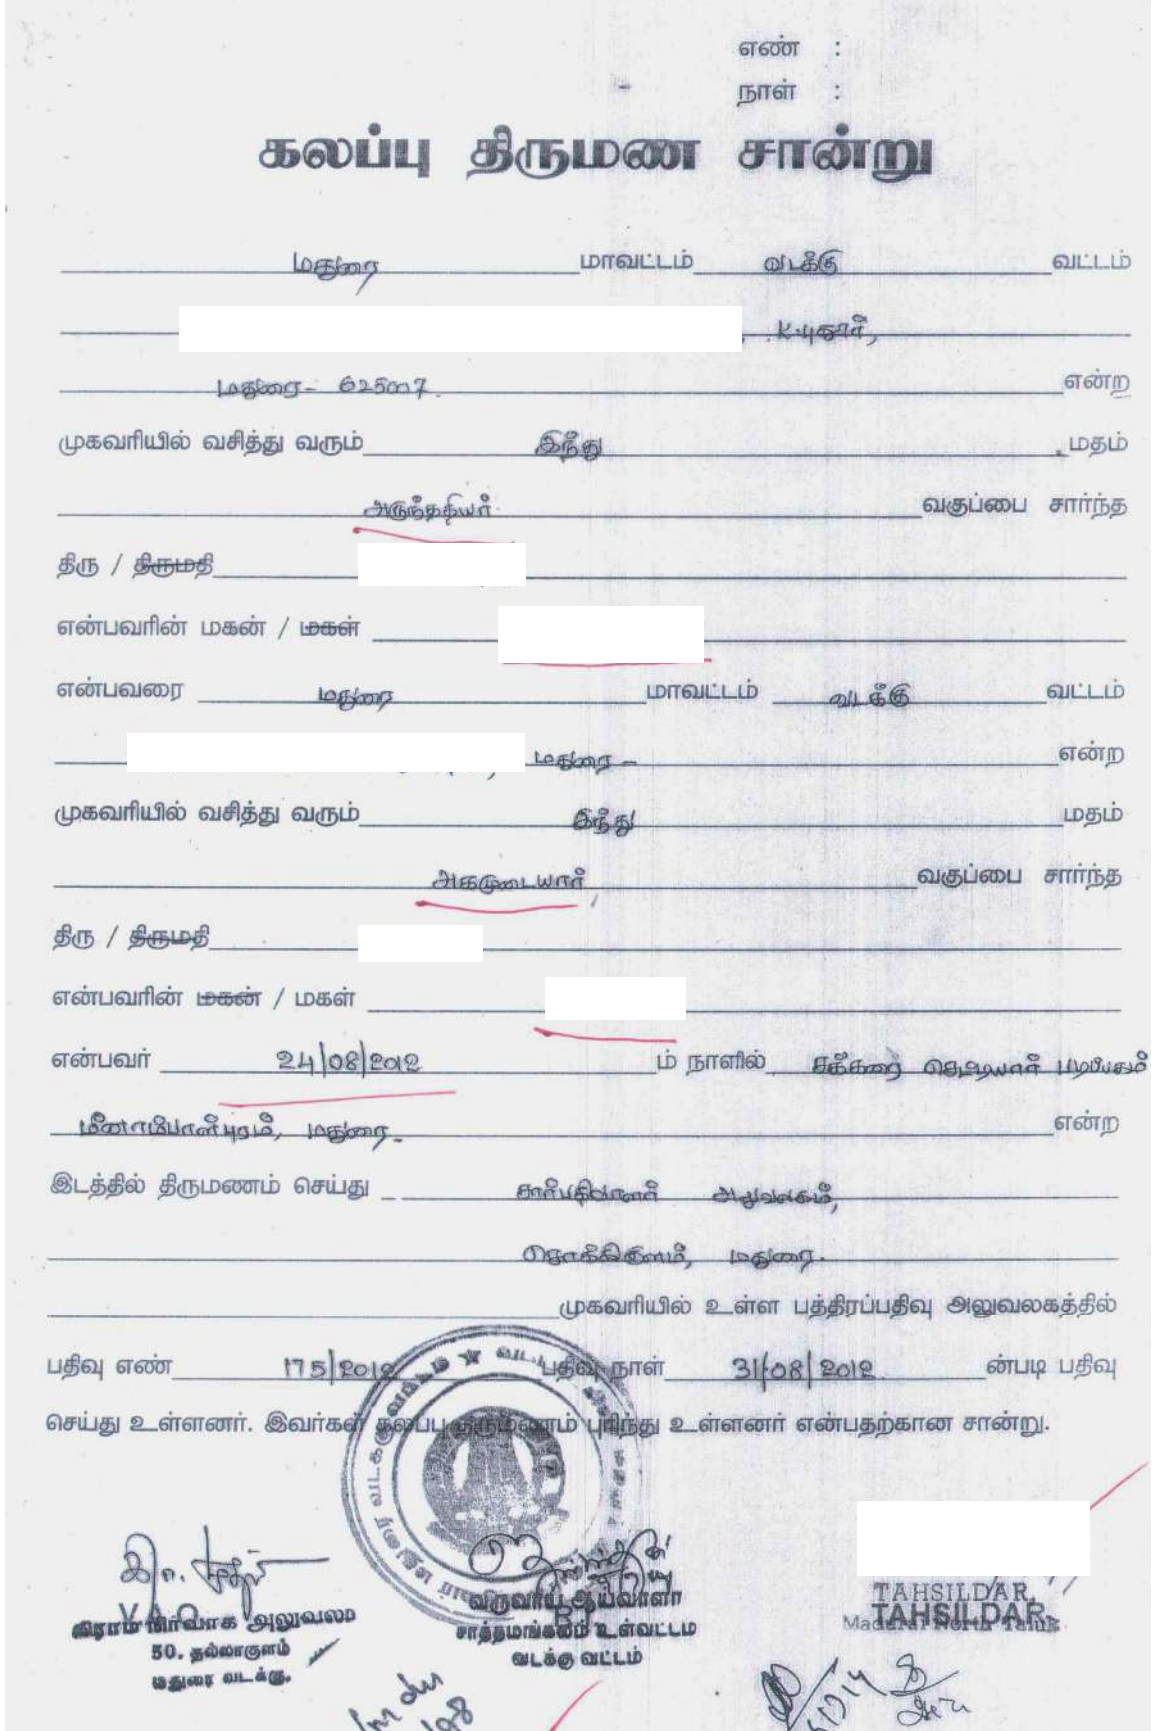 எண் :
நாள் :
கலப்பு திருமண சான்று
மதுரை மாவட்டம் வடக்கு வட்டம்
K.புதூர்,
மதுரை - 625007. என்ற
முகவரியில் வசித்து வரும் இந்து மதம்
அருந்ததியர் வகுப்பை சார்ந்த
திரு / திருமதி
என்பவரின் மகன் / மகள்
என்பவரை மதுரை மாவட்டம் வடக்கு வட்டம்
மதுரை - என்ற
முகவரியில் வசித்து வரும் இந்து மதம்
அகமுடையார் வகுப்பை சார்ந்த
திரு / திருமதி
என்பவரின் மகன் / மகள்
என்பவர் 24/08/2012 ம் நாளில் சக்கரை செட்டியார் படிப்பகம்
மீனாம்பாள்புரம், மதுரை. என்ற
இடத்தில் திருமணம் செய்து சார்பதிவாளர் அலுவலகம்,
சொக்கிகுளம், மதுரை.
முகவரியில் உள்ள பத்திரப்பதிவு அலுவலகத்தில்
பதிவு எண் 175/2012 பதிவு நாள் 31/08/2012 ன்படி பதிவு
செய்து உள்ளனர். இவர்கள் கலப்பு திருமணம் புரிந்து உள்ளனர் என்பதற்கான சான்று.
கிராம நிர்வாக அலுவலர்
V.A.O
50. தல்லாகுளம்
மதுரை வடக்கு.
வருவாய் ஆய்வாளர்
R.I
சாத்தமங்கலம் உள்வட்டம்
வடக்கு வட்டம்
TAHSILDAR,
TAHSILDAR
Madurai North Taluk